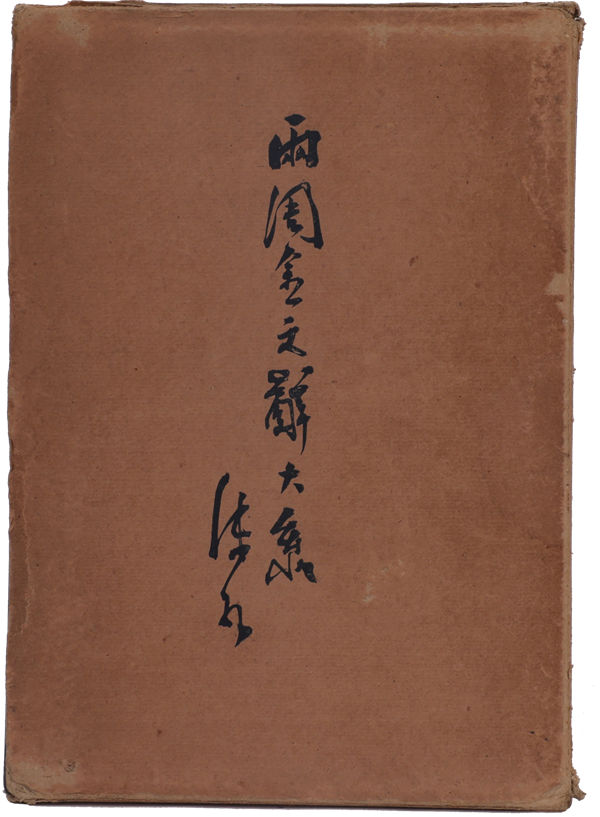 兩周金文辭大系
沫若